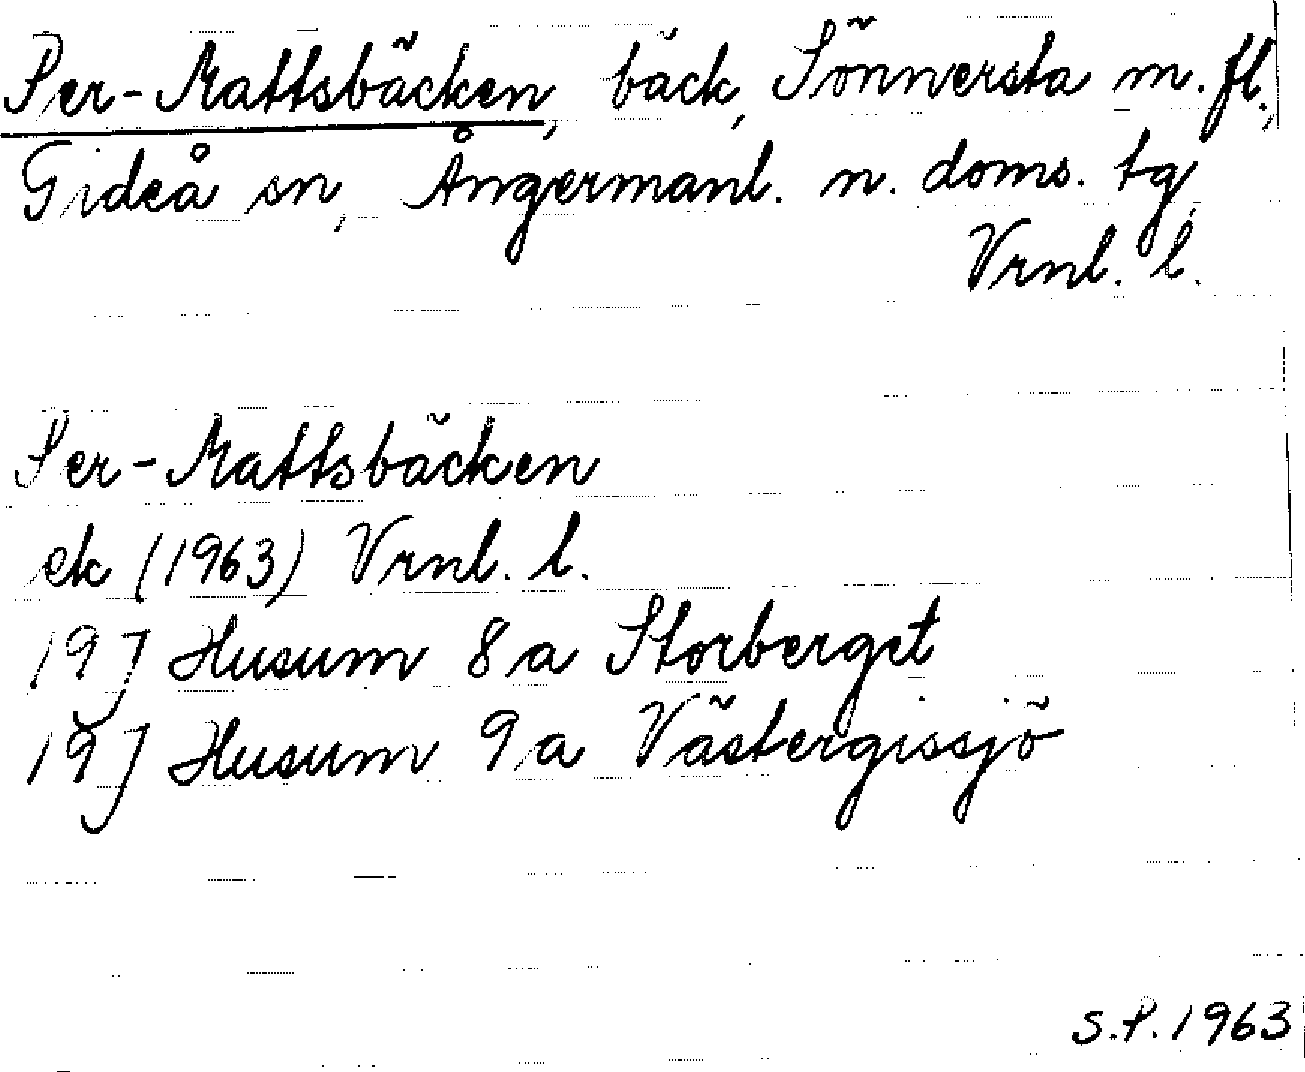 Per-Mattsbäcken, bäck, Sönnersta m. fl.,
Gideå sn, Ångermanl. n. doms. tg,
Vrnl. l.
Per-Mattsbäcken
ek (1963) Vrnl. l.
19J Husum 8a Storberget
19J Husum 9a Västergissjö
S.P. 1963